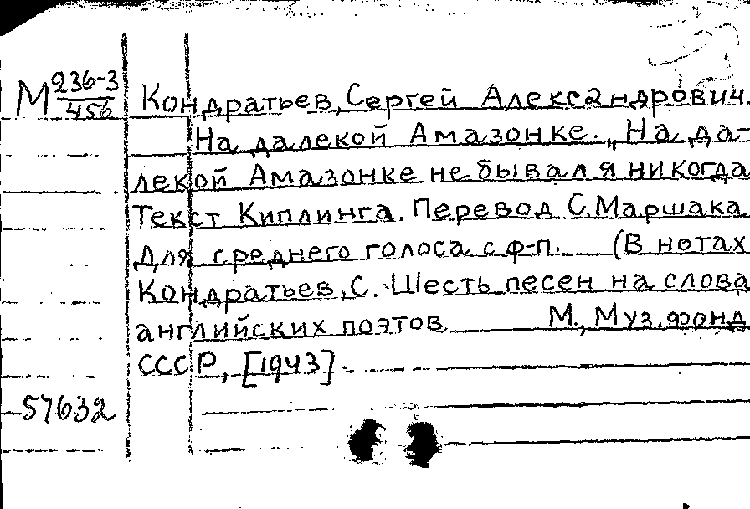 М 236-3/456
Кондратьев, Сергей Александрович.
На далекой Амазонке. „На да-
лекой Амазонке не бывал я никогда
Текст Киплинга. Перевод С. Маршака.
Для среднего голоса с ф-п. (В нотах
Кондратьев, С. Шесть песен на слова
английских поэтов М., Муз. фонд
СССР, [1943]
57632